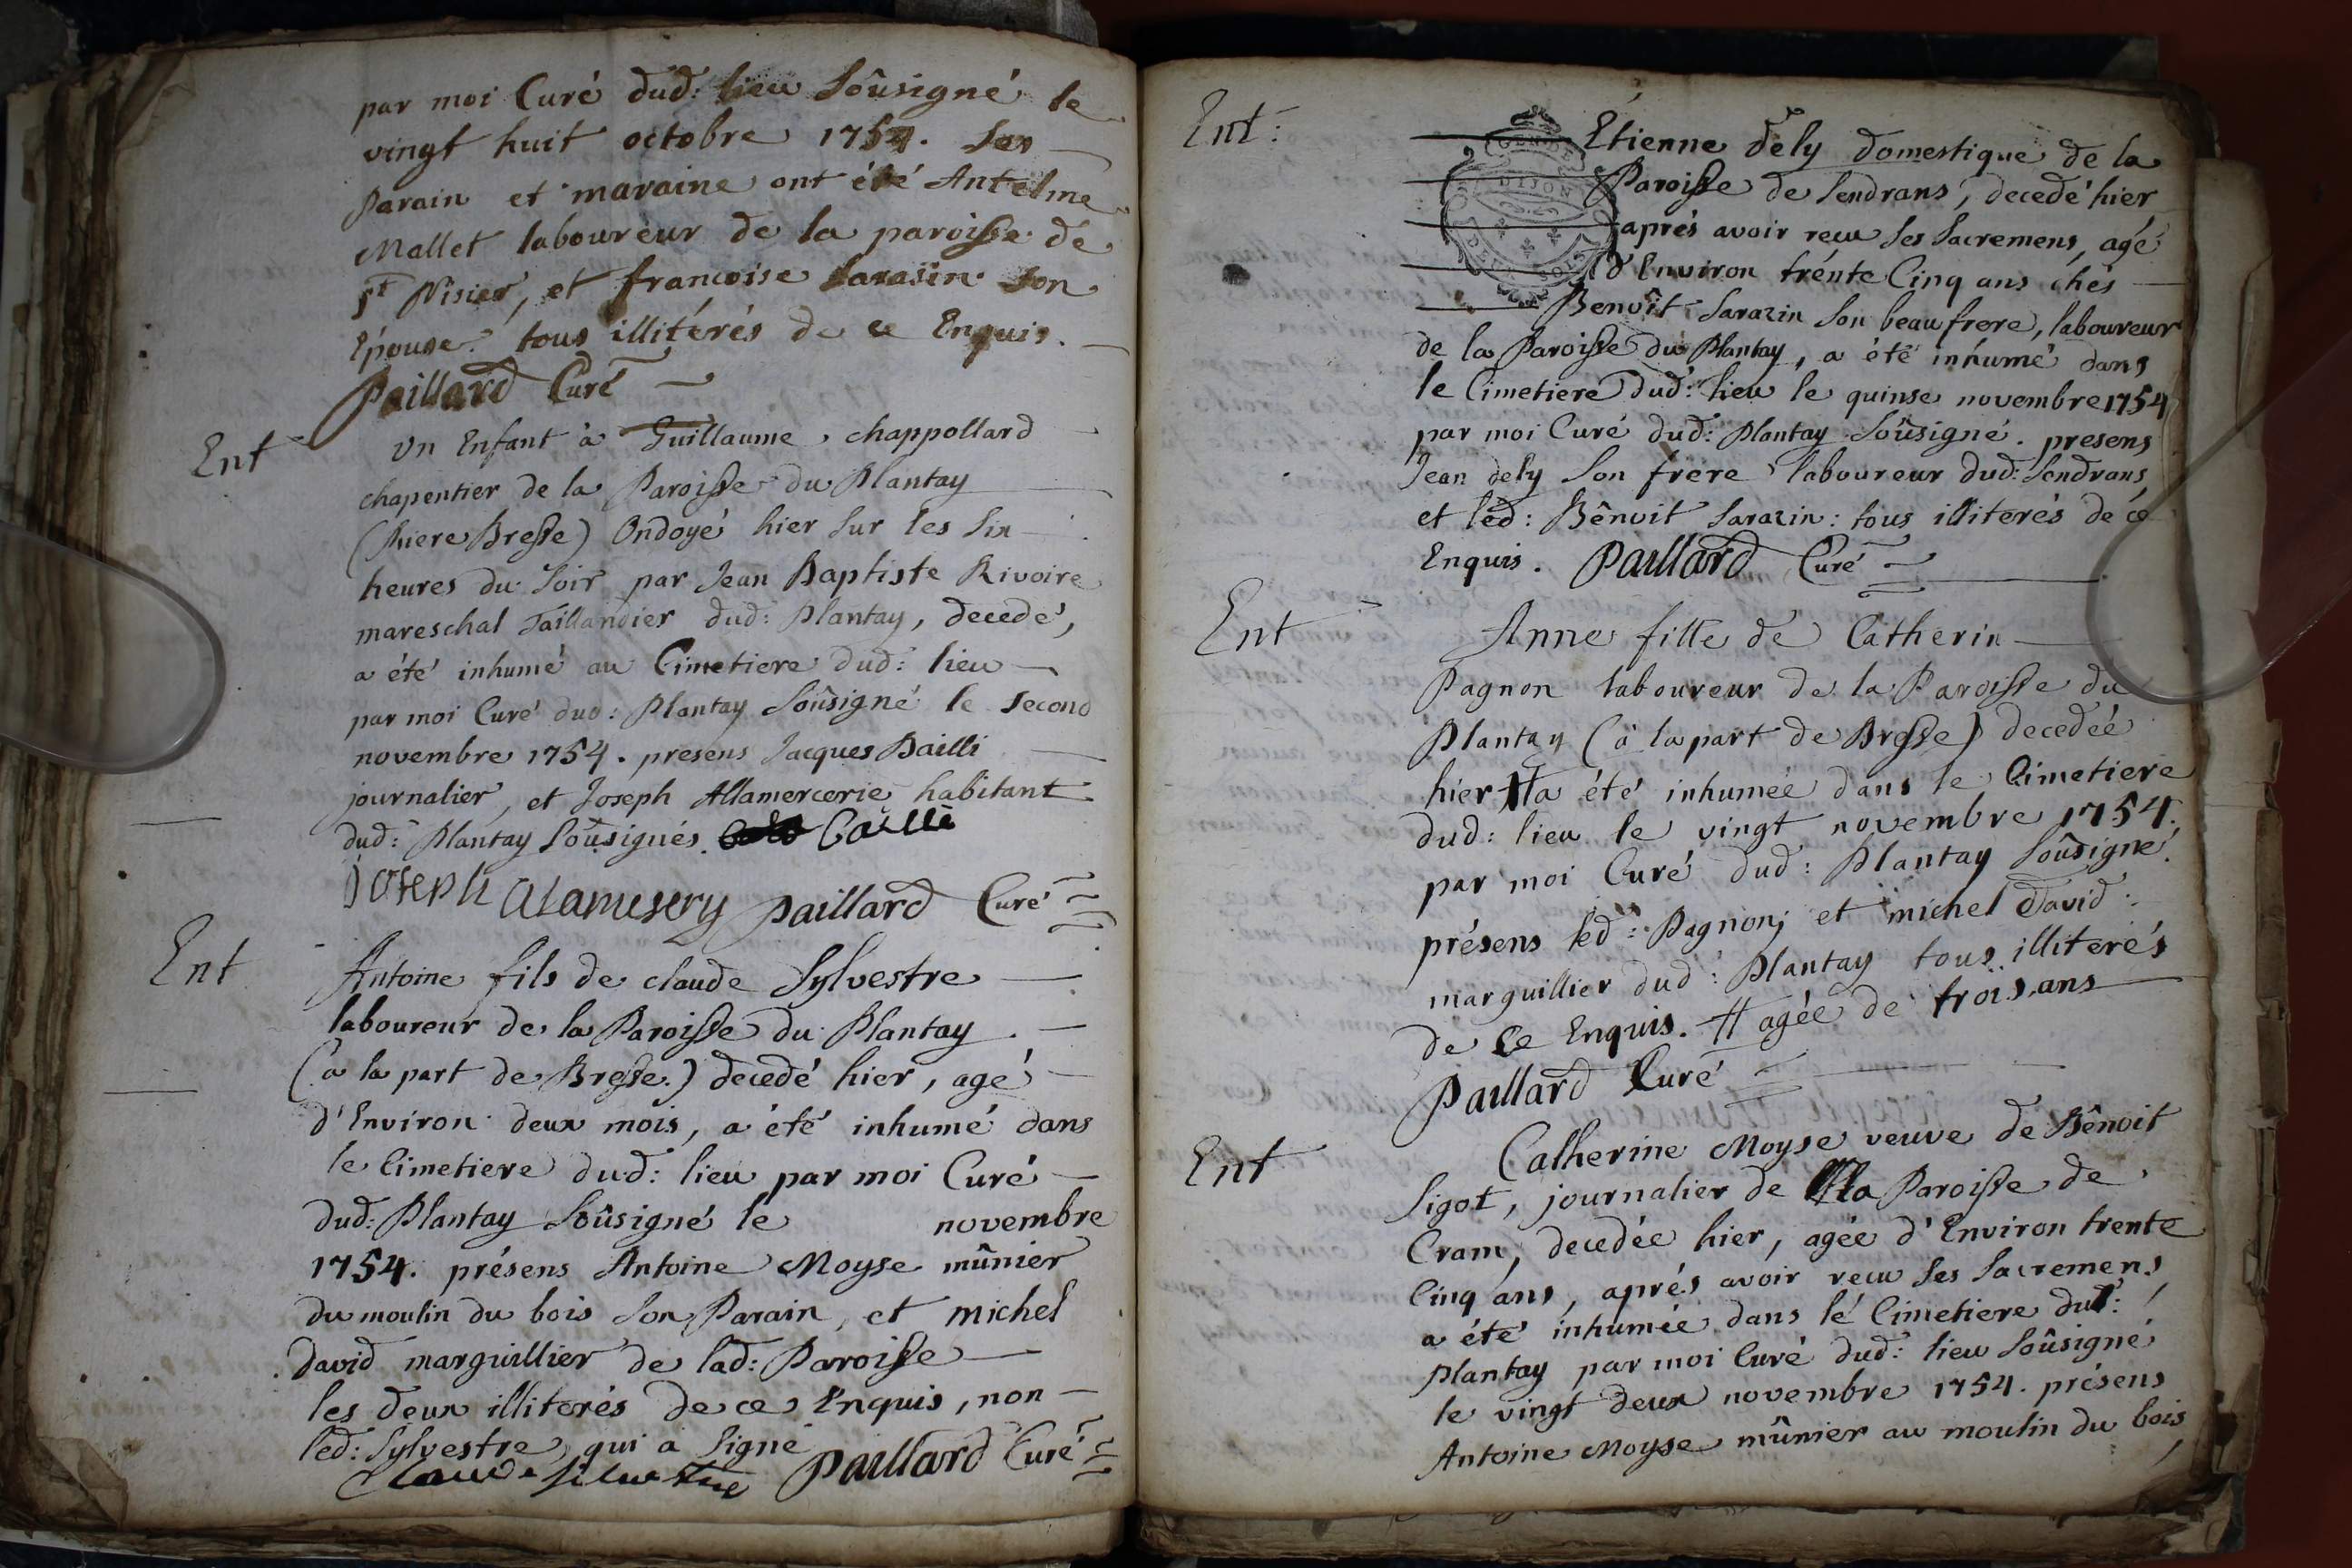 par moi Curé dud: lieu Soûsigné le
vingt huit octobre 1754. Son
Parain et maraine ont été Antelme
Mallet laboureur de la paroisse de
St Nisier, et francoise Sarasin son
Epouse. tous illitérés de ce Enquis.
Paillard Curé
Ent
Un Enfant à Guillaume chappollard
chapentier de la Paroisse du Plantay
(Riere Bresse) Ondoyé hier sur les six
heures du soir par Jean Baptiste Rivoire
mareschal Taillandier dud: Plantay, decedé,
a été inhumé au Cimetiere dud: lieu
par moi Curé dud: Plantay Soûsigné le second
novembre 1754. presens Jacques Bailli
journalier, et Joseph Allamercerie habitant
dud: Plantay Soûsignés. Baillè
joseph alamesery Paillard Curé
Ent
Antoine fils de claude Sylvestre
laboureur de la Paroisse du Plantay
(à la part de Bresse.) decedé hier, agé
d'Environ deux mois, a été inhumé dans
le Cimetiere dud: lieu par moi Curé
dud: Plantay Soûsigné le novembre
1754. présens Antoine Moyse mûnier
du moulin du bois son Parain, et michel
david marguillier de lad: Paroisse
les deux illiterés de ce Enquis, non
led: Sylvestre qui a signé
Claude silvestre Paillard Curé
Ent:
GEN DE
DIJON
DEUX SOLS
Étienne dely domestique de la
Paroisse de Sendrans, decedé hier
aprés avoir recu ses sacremens, agé
d'Environ trénte Cinq ans chés
Benoît Sarazin son beaufrere, laboureur
de la Paroisse du Plantay, a été inhumé dans
le Cimetiere dud: lieu le quinse novembre 1754
par moi Curé dud: Plantay Soûsigné. presens
Jean dely son frere laboureur dud: Sendrans,
et led: Bênoit Sarazin: tous illiterés de ce
Enquis. Paillard Curé
Ent
Anne fille de Catherin
Pagnon laboureur de la Paroisse du
Plantay (à la part de Bresse) decedée
hier # a été inhumée dans le Cimetiere
dud: lieu le vingt novembre 1754.
par moi Curé dud: Plantay Soûsigné.
présens led: Pagnon; et michel David
marguillier dud: Plantay tous illiterés
de ce Enquis. # agée de trois ans
Paillard Curé
Ent
Catherine Moyse veuve de Bênoit
Sigot, journalier de la Paroisse de
Cram, decedée hier, agée d'Environ trente
Cinq ans, aprés avoir recu ses sacremens
a été inhumée dans le Cimetiere dud:
Plantay par moi Curé dud: lieu Soûsigné
le vingt deux novembre 1754. présens
Antoine Moyse mûnier au moulin du bois,